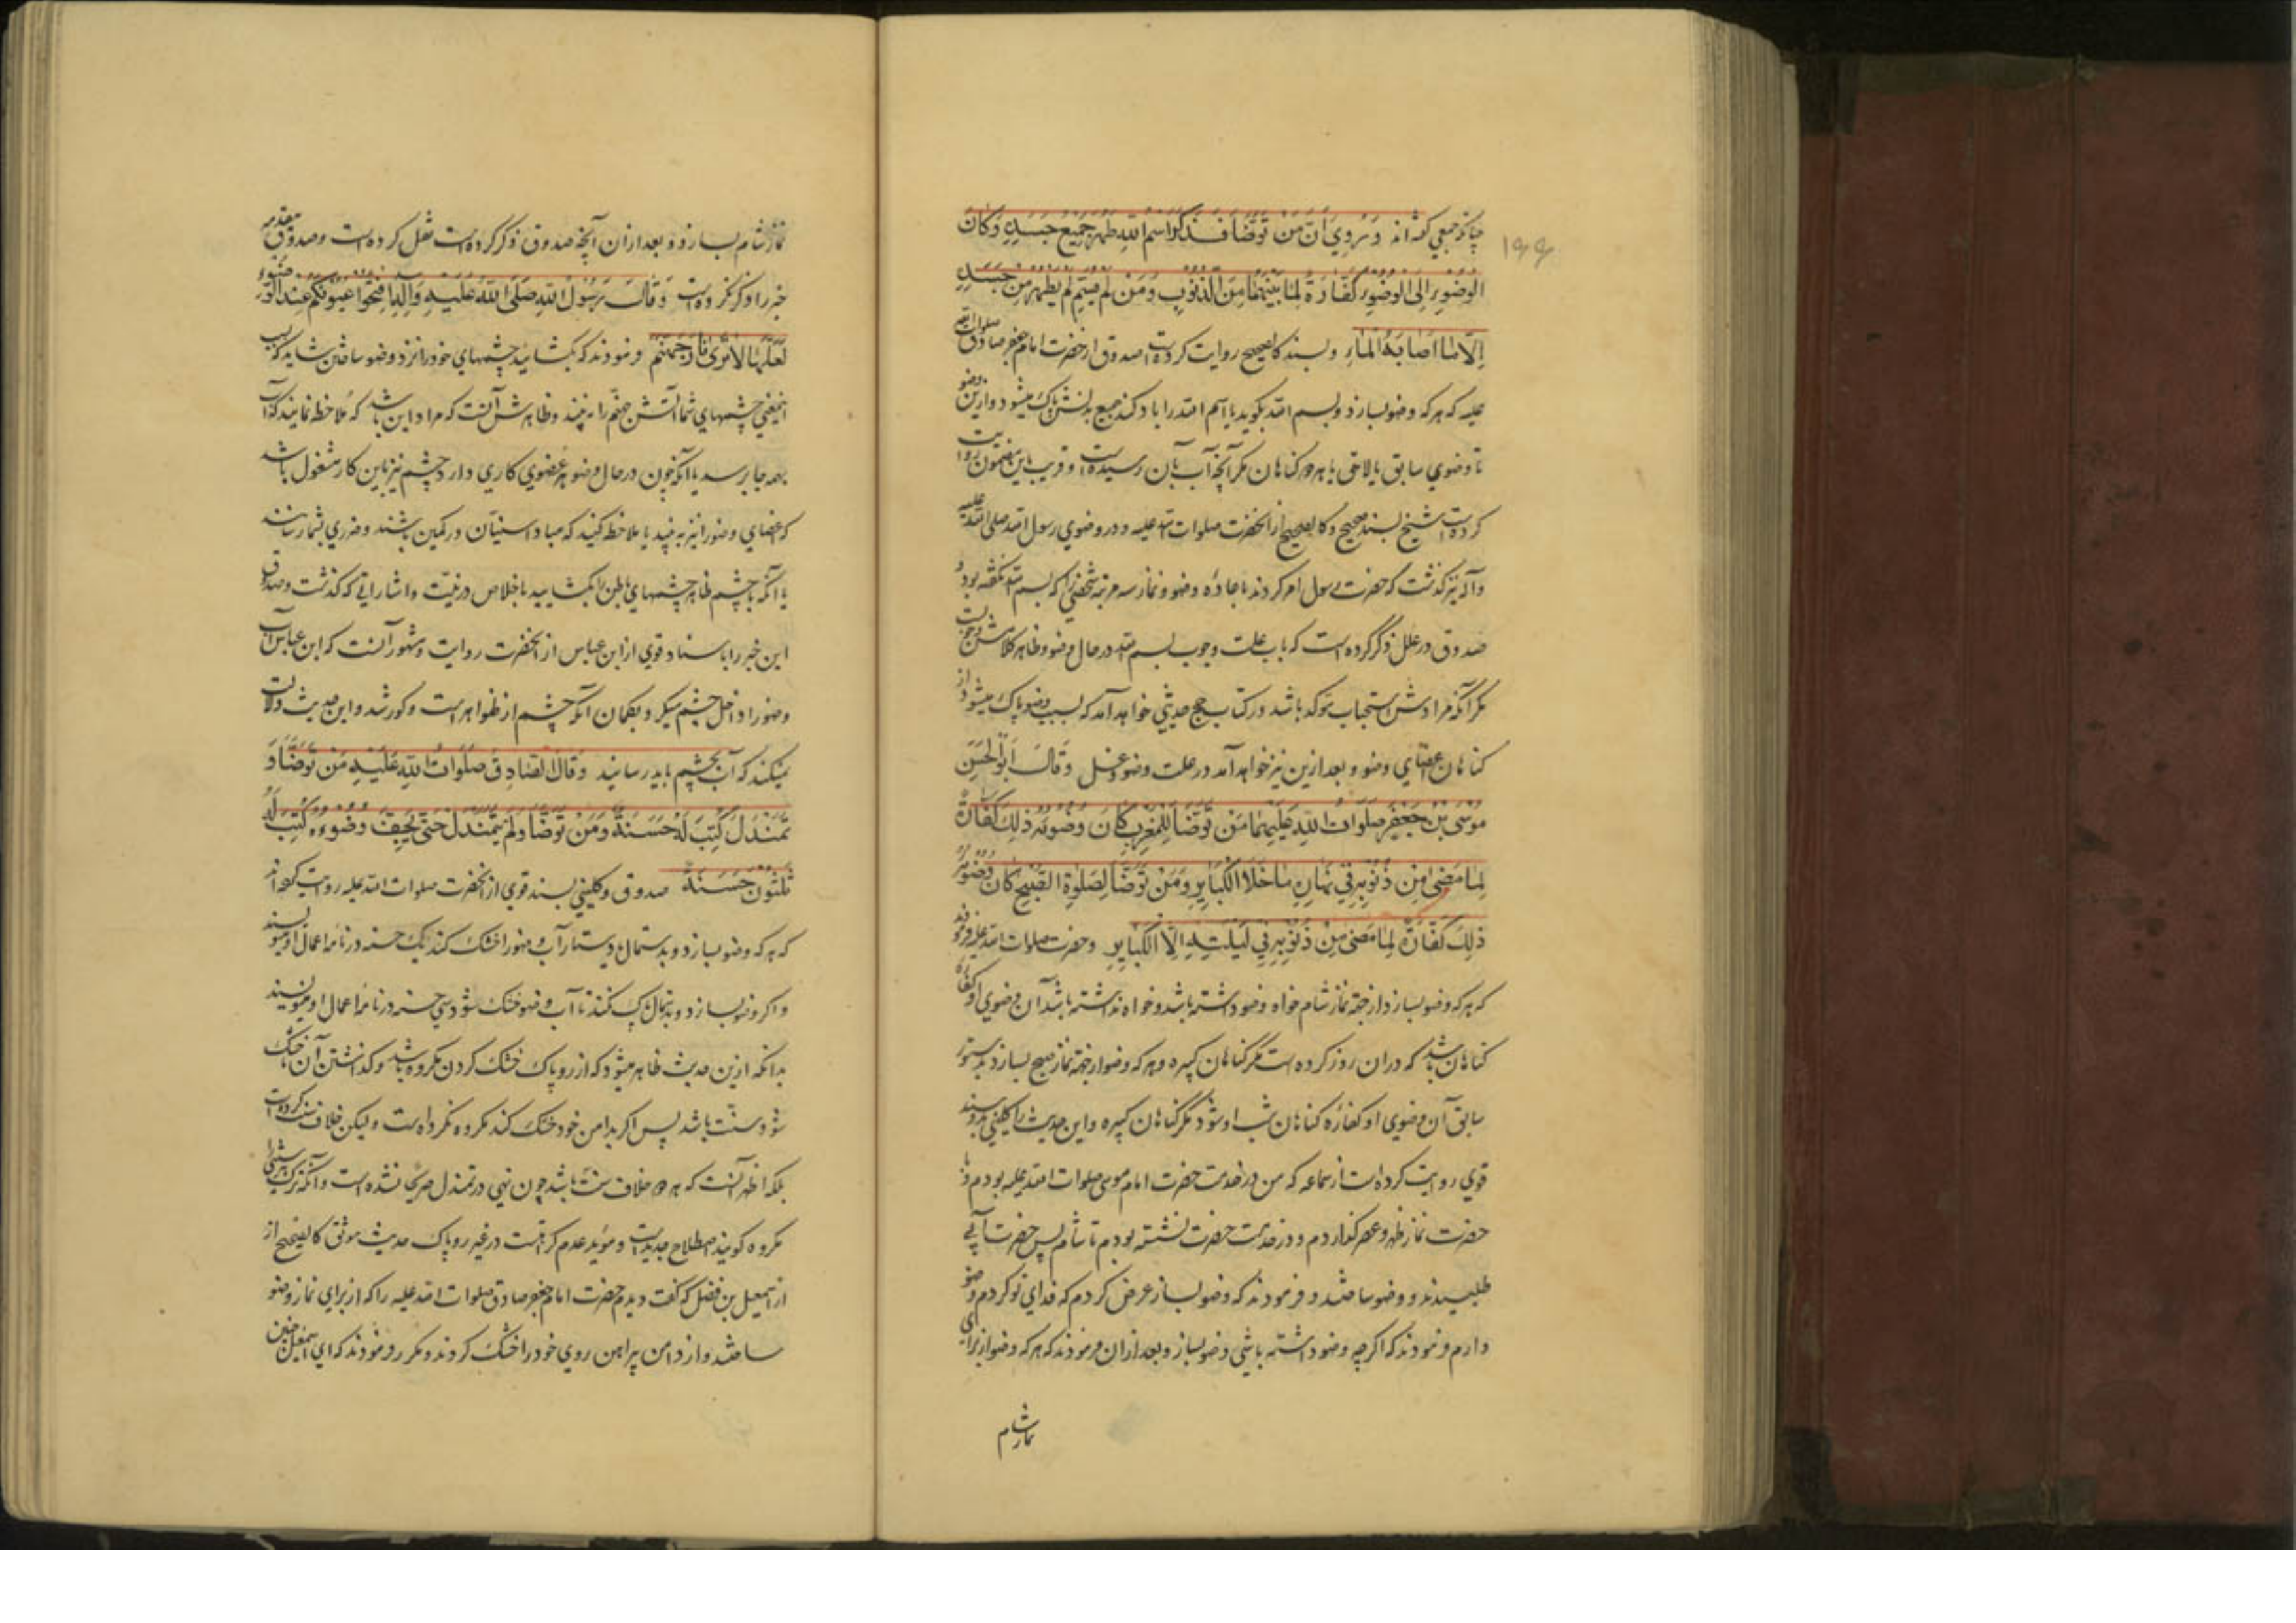 ۱۹۹
چنانکه جمعی گفته‌اند وَ رُوِيَ أَنَّ مَنْ تَوَضَّأَ فَذَكَرَ اسْمَ اللّٰهِ طَهُرَ جَمِيعُ جَسَدِهِ وَكَانَ
الْوُضُوءُ إِلَى الْوُضُوءِ كَفَّارَةً لِمَا بَيْنَهُمَا مِنَ الذُّنُوبِ وَمَنْ لَمْ يُسَمِّ لَمْ يَطْهُرْ مِنْ جَسَدِهِ
إِلَّا مَا أَصَابَهُ الْمَاءُ و بسند کالصحیح روایت کرده است صدوق از حضرت امام جعفر صادق صلوات الله
علیه که هر که وضو بسازد و بسم الله بگوید یا اسم الله را یاد کند جمیع بدنش پاک میشود و ازین وضو
تا وضوی سابق یا لاحق یا هر دو گناهان مگر آنچه آب بآن رسیده است و قریب باین مضمون روایت
کرده است شیخ بسند صحیح و کالصحیح از آنحضرت صلوات الله علیه و در وضوی رسول الله صلی الله علیه
و آله نیز گذشت که حضرت رسول امر کردند باعاده وضو و نماز سه مرتبه شخصی را که بسم الله نگفته بود و
صدوق در علل ذکر کرده است که باب علت وجوب بسم الله در حال وضو و ظاهر کلامش وجوبست
مگر آنکه مرادش استحباب موکد باشد و در کتاب حج حدیثی خواهد آمد که بسبب وضو پاک میشود از
گناهان اعضای وضو و بعد ازین نیز خواهد آمد در علت وضو و غسل وَقَالَ أَبُو الْحَسَنِ
مُوسَى بْنُ جَعْفَرٍ صَلَوَاتُ اللّٰهِ عَلَيْهِمَا مَنْ تَوَضَّأَ لِلْمَغْرِبِ كَانَ وُضُوئُهُ ذٰلِكَ كَفَّارَةً
لِمَا مَضٰى مِنْ ذُنُوبِهِ فِي نَهَارِهِ مَا خَلَا الْكَبَايِرَ وَمَنْ تَوَضَّأَ لِصَلٰوةِ الصُّبْحِ كَانَ وُضُوئُهُ
ذٰلِكَ كَفَّارَةً لِمَا مَضٰى مِنْ ذُنُوبِهِ فِي لَيْلَتِهِ إِلَّا الْكَبَايِرَ و حضرت صلوات الله علیه فرمودند
که هر که وضو بسازد از جهة نماز شام خواه وضو داشته باشد و خواه نداشته باشد آن وضوی او کفاره
گناهان باشد که در آن روز کرده است مگر گناهان کبیره و هر که وضو از جهة نماز صبح بسازد بدستور
سابق آن وضوی او کفاره گناهان شب او شود مگر گناهان کبیره و این حدیث را کلینی بدو سند
قوی روایت کرده است از سماعه که من در خدمت حضرت امام موسی صلوات الله علیه بودم و با
حضرت نماز ظهر و عصر گذاردم و در خدمت حضرت نشسته بودم تا شام پس حضرت آبی
طلبیدند و وضو ساختند و فرمودند که وضو بساز عرض کردم که فدای تو گردم وضو
دارم فرمودند که اگرچه وضو داشته باشی وضو بساز و بعد از آن فرمودند که هر که وضو از برای
نماز شام
نماز شام بسازد و بعد از آن آنچه صدوق ذکر کرده است نقل کرده است و صدوق مقدمه
خبر را ذکر نکرده است وَقَالَ رَسُولُ اللّٰهِ صَلَّى اللّٰهُ عَلَيْهِ وَآلِهِ افْتَحُوا عُيُونَكُمْ عِنْدَ الْوُضُوءِ
لَعَلَّهَا لَا تَرٰى نَارَ جَهَنَّمَ فرمودند که بگشایید چشمهای خود را نزد وضو ساختن شاید که بسبب
اینمعنی چشمهای شما آتش جهنم را نه بیند و ظاهرش آنست که مراد این باشد که ملاحظه نمایند که آب
بهمه جا برسد یا آنکه چون در حال وضو هر عضوی کاری دارد چشم نیز باین کار مشغول باشد
که اعضای وضو را نیز به بیند یا ملاحظه کنید که مبادا سنیان در کمین باشند و ضرری بشما رسانند
یا آنکه با چشم ظاهر چشمهای باطن را بگشایید باخلاص در نیت و اشاراتی که گذشت و صدوق
این خبر را باسناد قوی از ابن عباس از آنحضرت روایت و مشهور آنست که ابن عباس آب
وضو را داخل چشم میکرد بگمان آنکه چشم از ظواهر است و کور شد و این حدیث دلالت
نمیکند که آب بچشم باید رسانید وَقَالَ الصَّادِقُ صَلَوَاتُ اللّٰهِ عَلَيْهِ مَنْ تَوَضَّأَ وَ
تَمَنْدَلَ كُتِبَ لَهُ حَسَنَةٌ وَمَنْ تَوَضَّأَ وَلَمْ يَتَمَنْدَلْ حَتّٰى يَجِفَّ وُضُوءُهُ كُتِبَ لَهُ
ثَلٰثُونَ حَسَنَةً صدوق و کلینی بسند قوی از آنحضرت صلوات الله علیه روایت کرده‌اند
که هر که وضو بسازد و بدستمال یا دستار آب وضو را خشک کند یک حسنه در نامه اعمال او مینویسند
و اگر وضو بسازد و بدستمال پاک نکند تا آب وضو خشک شود سی حسنه در نامه اعمال او مینویسند
بدانکه ازین حدیث ظاهر میشود که از روپاک خشک کردن مکروه باشد و گذاشتن آن تا خشک
شود سنت باشد پس اگر بدامن خود خشک کند مکروه نکرده است و لیکن خلاف سنت کرده است
بلکه اظهر آنست که هر دو خلاف سنت باشد چون نهی در تمندل صریحا نشده است و آنکه ترک هر سنتی را
مکروه گویند اصطلاح جدید است و موید عدم کراهت در غیر روپاک حدیث موثق کالصحیح از
از اسمعیل بن فضل که گفت دیدم حضرت امام جعفر صادق صلوات الله علیه را که از برای نماز وضو
ساختند و از دامن پیراهن روی خود را خشک کردند و فرمودند که ای اسمعیل چنین